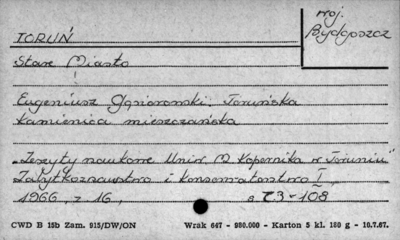 TORUŃ
woj.
Bydgoszcz
Stare Miasto
Eugeniusz Gąsiorowski. Toruńska
kamienica mieszczańska
„Zeszyty naukowe Uniw. M. Kopernika w Toruniu"
Zabytkoznawstwo i konserwatorstwo I,
1966, z 16, s 73-108
CWD B 15b Zam. 915/DW/ON Wrak 647 - 980.000 - Karton 5 kl. 180 g - 10.7.67.